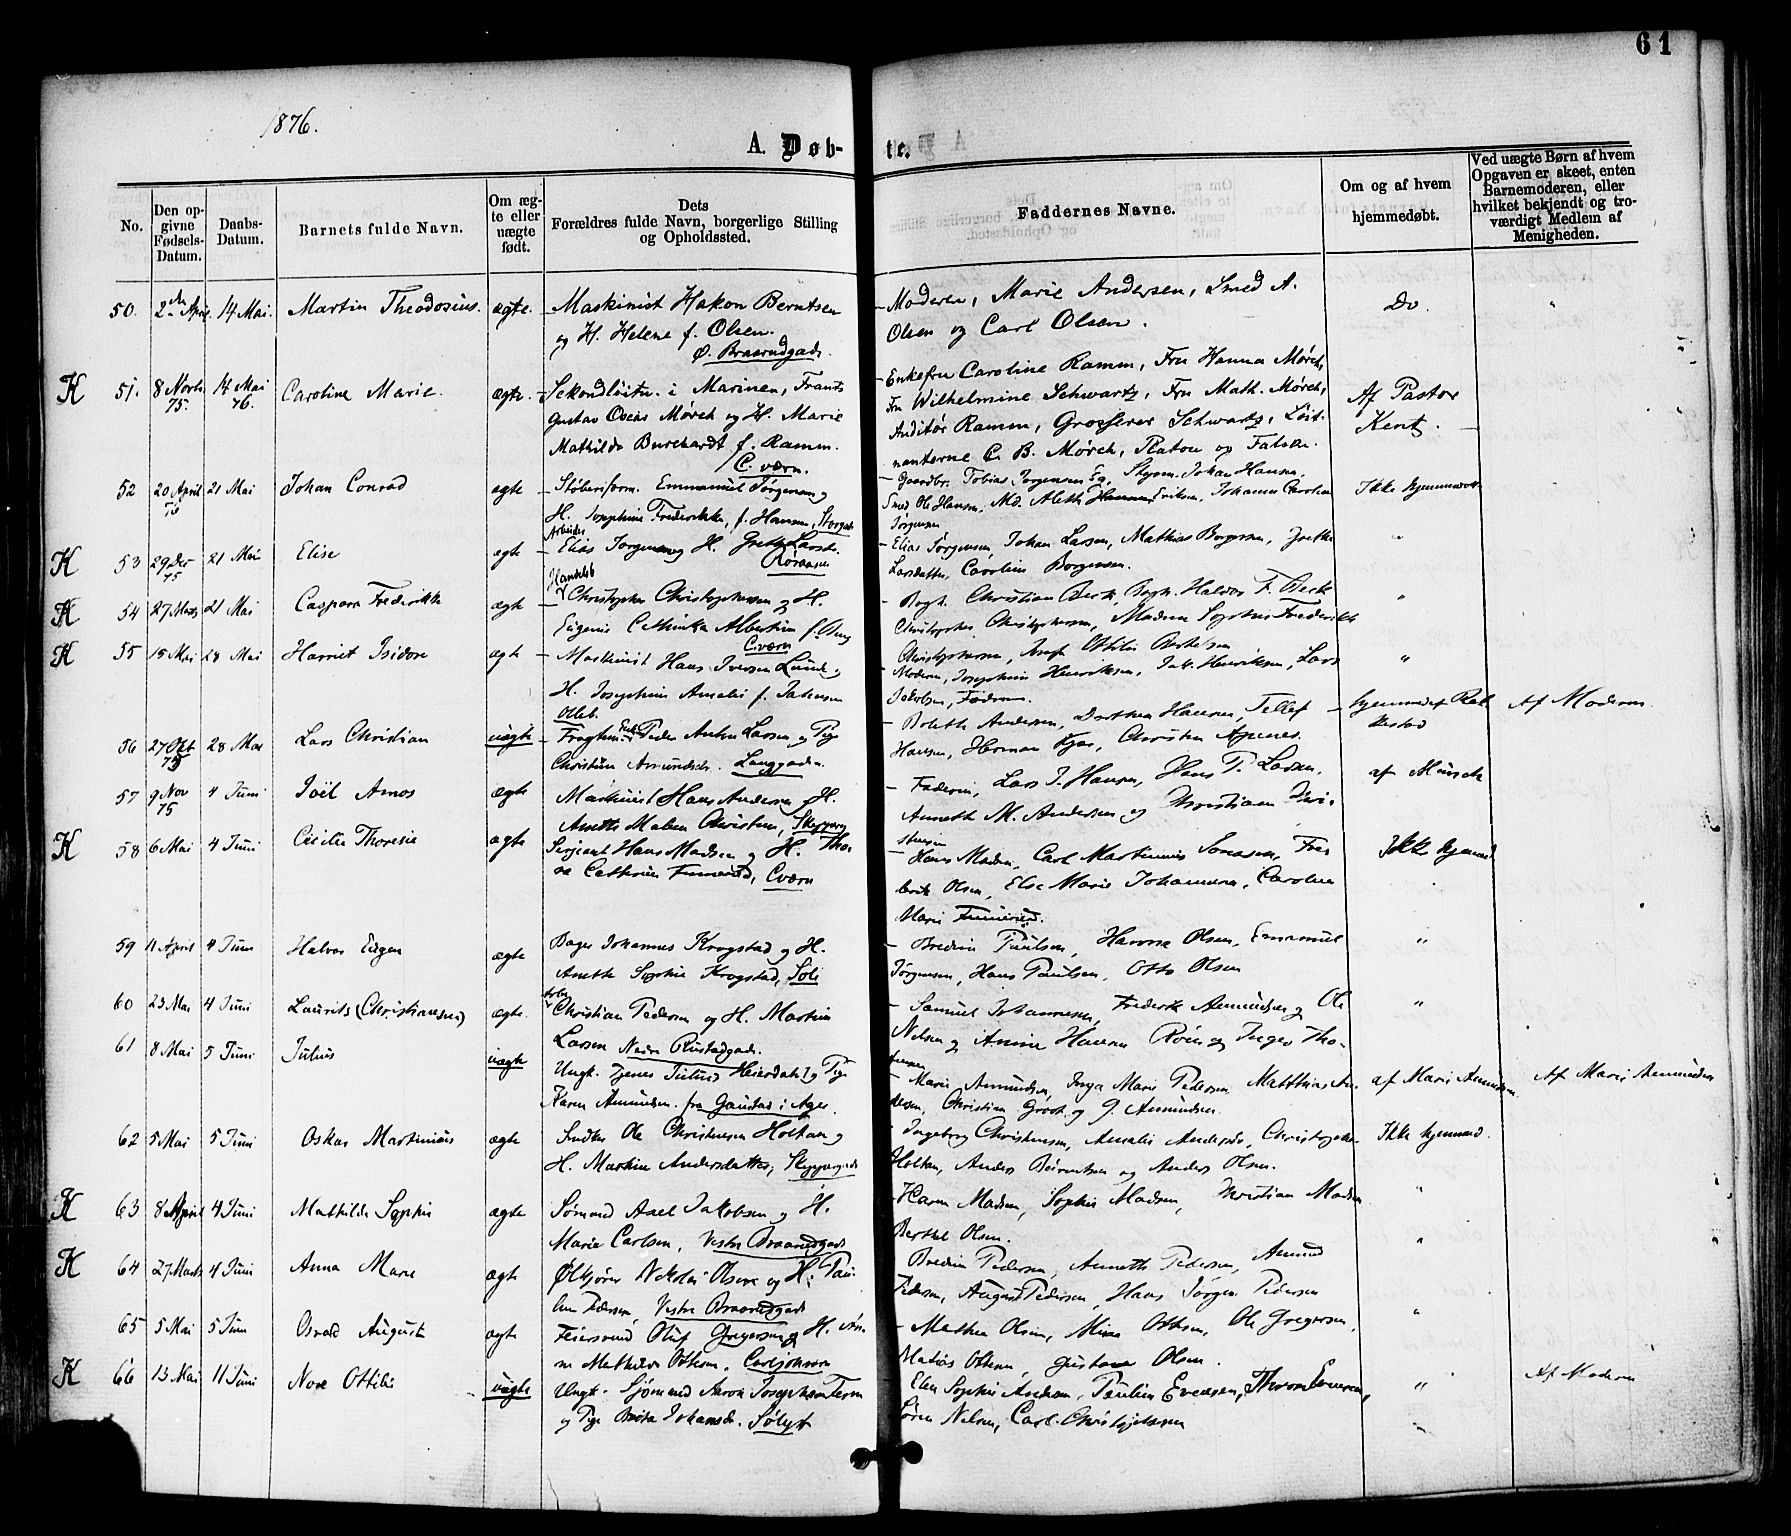 61
1876.
A. Døb-
te.
No.
Den op-
givne
Fødsels-
Datum.
Daabs-
Datum.
Barnets fulde Navn.
Om æg-
te eller
uægte
født.
Dets
Forældres fulde Navn, borgerlige Stilling
og Opholdssted.
Faddernes Navne.
Om og af hvem
hjemmedøbt.
Ved uægte Børn af hvem
Opgaven er skeet, enten
Barnemoderen, eller
hvilket bekjendt og tro-
værdigt Medlem af
Menigheden.
50. 2den April 14 Mai. Martin Theodosius. ægte. Maskinist Hakon Berntsen
og H. Helene f. Olsen.
Ø. Braarudgade.
Moderen, Marie Andersen, Smed A.
Olsen og Carl Olsen.
Do.
K 51. 8 Novbr 75. 14 Mai 76. Caroline Marie. ægte. Sekondløitn. i Marinen, Frants
Gustav Mørch og H. Marie
Mathilde Burchardt f. Ramm.
C. værn.
Enkefru Caroline Ramm, Fru Hanna Mørch,
Fru Wilhelmine Schwartz, Fru Math. Mørch,
Auditør Ramm, Grosserer Schwartz, Løit-
nanterne C. B. Mørch, Platou og Falsen.
Af Pastor
Kent.
52 20 April 76 21 Mai Johan Conrad ægte Støberiform. Emmanuel Jørgensen og
H. Josephine Frederikke, f. Hansen, Storgad.
Gaardbr. Tobias Jørgensen Eg, Styrm. Johan Hansen,
Smed Ole Hansen, Md. Aleth Eriksen, Johanne Caroline
Jørgensen
Ikke hjemmedøbt
K 53 29 Des 75 21 Mai Elise ægte Arbeider
Elias Jørgensen og H. Grethe Larsdr.
Elias Jørgensen, Johan Larsen, Mathias Borgersen, Grethe
Larsdatter, Caroline Borgensen.
"
K 54 27 Marts 21 Mai Caspara Frederikke ægte Handelsb
Christopher Christophersen og H.
Eugenie Albertine f. Berg
C.værn
Bogh. Christian Berk, Bogh. Halvor F. Berk
Christopher Christophersen, Madam Sophie Frederikke
Christophersen, Ottilie
"
K 55 15 Mai 28 Mai Harriet Isidore ægte Maskinist Hans Iversen Lunde og
H. Josephine Amalie f. Jakobsen
Moderen, Josephine Henriksen, Jak. Henriksen, Lars
Jakobsen, Faderen
"
56 27 Okt 75 28 Mai Lars Christian uægte Peder Anton Larsen og Pige
Christine Amundsdr. Langgaden.
Boleth Andersen, Dorthea Hansen, Tellef
Hansen, Herman Kjær, Christen Apenes.
Af Moderen.
57 9 Nov 75 4 Juni Joël Amos ægte Maskinist Hans Andersen og H.
Anette Malene Christine, Skipparg
Faderen, Lars J. Hansen, Hans P. Larsen,
Anneth M. Andersen og Christiane Chri-
stensen
af Münster
K 58 6 Mai 4 Juni Cecilie Thoresie ægte Sergeant Hans Madsen og H. Tho-
ra Cathrine Funnerud, C.værn
Hans Madsen, Carl Martinius Jonassen, Fre-
derik Olsen, Else Marie Johannesen, Caroline
Marie Funnerud.
Ikke hjemmed
59 11 April 4 Juni Halvor Eugen ægte Bager Johannes Krogstad og H.
Anette Sophie Krogstad, Soli
Bredine Paulsen, Hanna Olsen, Emmanuel
Jørgensen, Hans Paulsen, Otto Olsen
"
60 23 Mai 4 Juni Laurits (Christiansen) ægte. Arbr
Christian Pedersen og H. Martine
Larsen Nedre Rustadgade.
Samuel Johannesen, Frederik Amundsen og Ole
Nilsen og Anine Hansen Røren og Inger Tho-
resen
"
61 8 Mai 5 Juni Julius uægte Ungk. Jens Julius Heierdahl og Pige
Karen Amundsen fra Gaustad i Ager.
Marie Amundsen, Inga Marie Pedersen, Matthias An-
dersen, Christian Groot og G. Amundsen.
af Marie Amundsen
Af Marie Amundsen
62 5 Mai 5 Juni Oskar Martinius ægte Snedker Ole Christensen Holtan og
H. Martine Andersdatter, Skippergade
Ingeborg Christensen, Amalie Andersdr, Christopher
Holtan, Anders Berntsen og Anders Olsen.
Ikke hjemmed.
K 63 8 April 4 Juni Mathilde Sophie ægte Sømand Axel Jakobsen og H.
Marie Carlsen, Vestre Braarudgade
Karen Madsen, Sophie Madsen, Christian Madsen
Berthel Olsen.
"
K 64 27 Marts 4 Juni Anna Marie ægte Ølkjører Nikolai Olsen og H. Pau-
line Pedersen, Vestre Braarudgade
Bredine Pedersen, Anneth Pedersen, Amund
Pedersen, August Pedersen, Hans Jørgen Pedersen
"
65 5 Mai 5 Juni Osvald August ægte Feiersvend Oluf Gregersen og H. An-
ne Mathilde Ottesen, Carljohansværn
Mathea Olsen, Mina Ottesen, Ole Gregersen,
Matias Ottesen, Gustava Olsen.
"
K 66 13 Mai 11 Juni Nora Ottilie uægte Ungk. Sjømand Aaron Josephsen
og Pige Berta Johansdr. Sølyst
Elen Sophie Andersen, Pauline Evensen, Thron Evensen,
Søren Nilsen, Carl Christophersen
"
Af Moderen